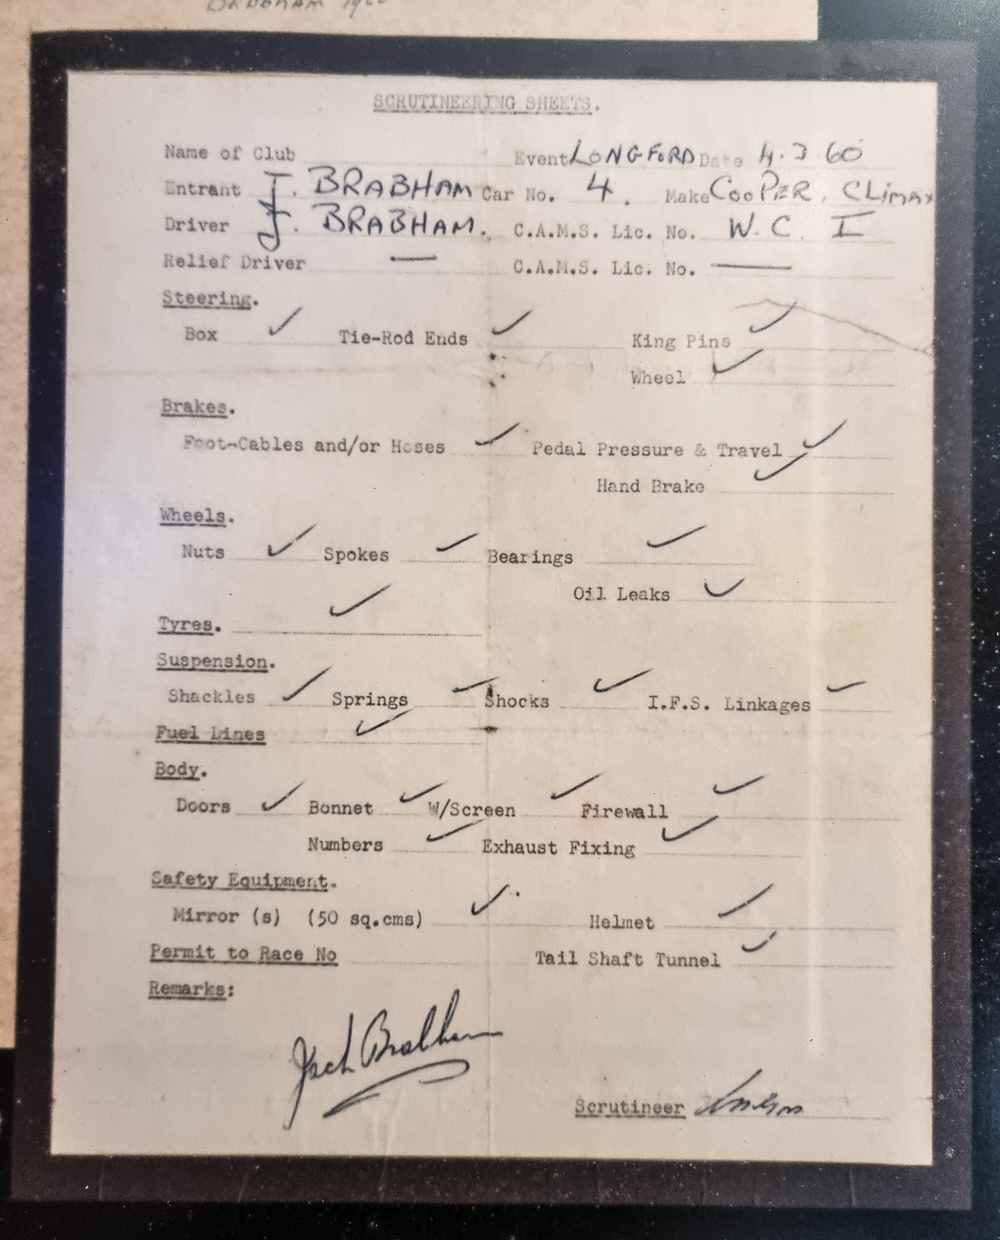 BRABHAM
SCRUTINEERING SHEETS.
Name of Club Event LONGFORD Date 4.3.60
Entrant J. BRABHAM Car No. 4. Make COOPER, CLIMAX
Driver J. BRABHAM. C.A.M.S. Lic. No. W.C. I
Relief Driver — C.A.M.S. Lic. No. —
Steering.
Box ✓ Tie-Rod Ends ✓ King Pins ✓
Wheel ✓
Brakes.
Foot-Cables and/or Hoses ✓ Pedal Pressure & Travel ✓
Hand Brake ✓
Wheels.
Nuts ✓ Spokes ✓ Bearings ✓
Oil Leaks ✓
Tyres. ✓
Suspension.
Shackles ✓ Springs ✓ Shocks ✓ I.F.S. Linkages ✓
Fuel Lines ✓
Body.
Doors ✓ Bonnet ✓ W/Screen ✓ Firewall ✓
Numbers ✓ Exhaust Fixing ✓
Safety Equipment.
Mirror (s) (50 sq.cms) ✓ Helmet ✓
Permit to Race No Tail Shaft Tunnel ✓
Remarks:
Jack Brabham
Scrutineer